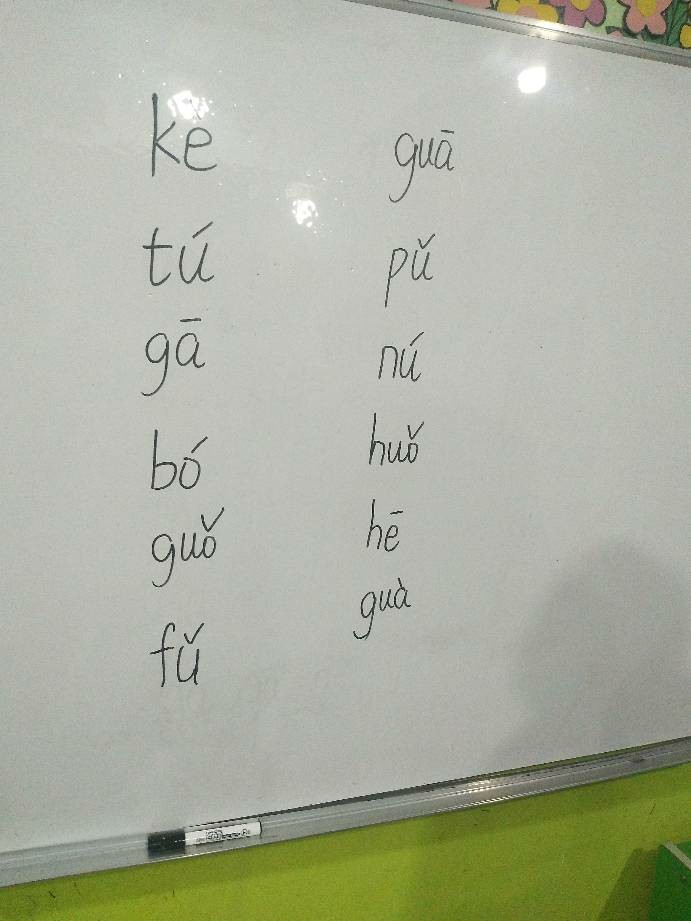 kè
tú
gā
bó
guǒ
fǔ
guā
pǔ
nú
huǒ
hē
guà